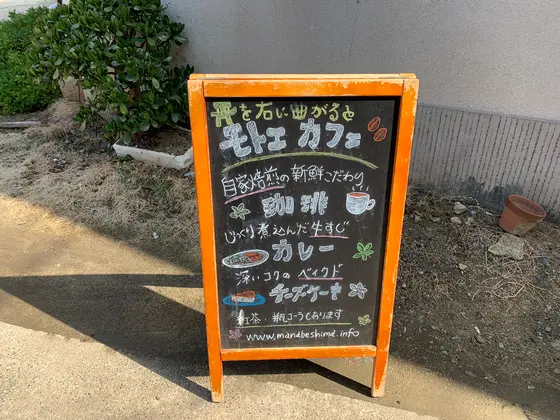 を右に曲がると
モトエ カフェ
自家焙煎の新鮮こだわり
珈琲
じっくり煮込んだ牛すじ
カレー
深いコクのベイクド
チーズケーキ
紅茶・瓶コーラもあります
www.manabeshima.info